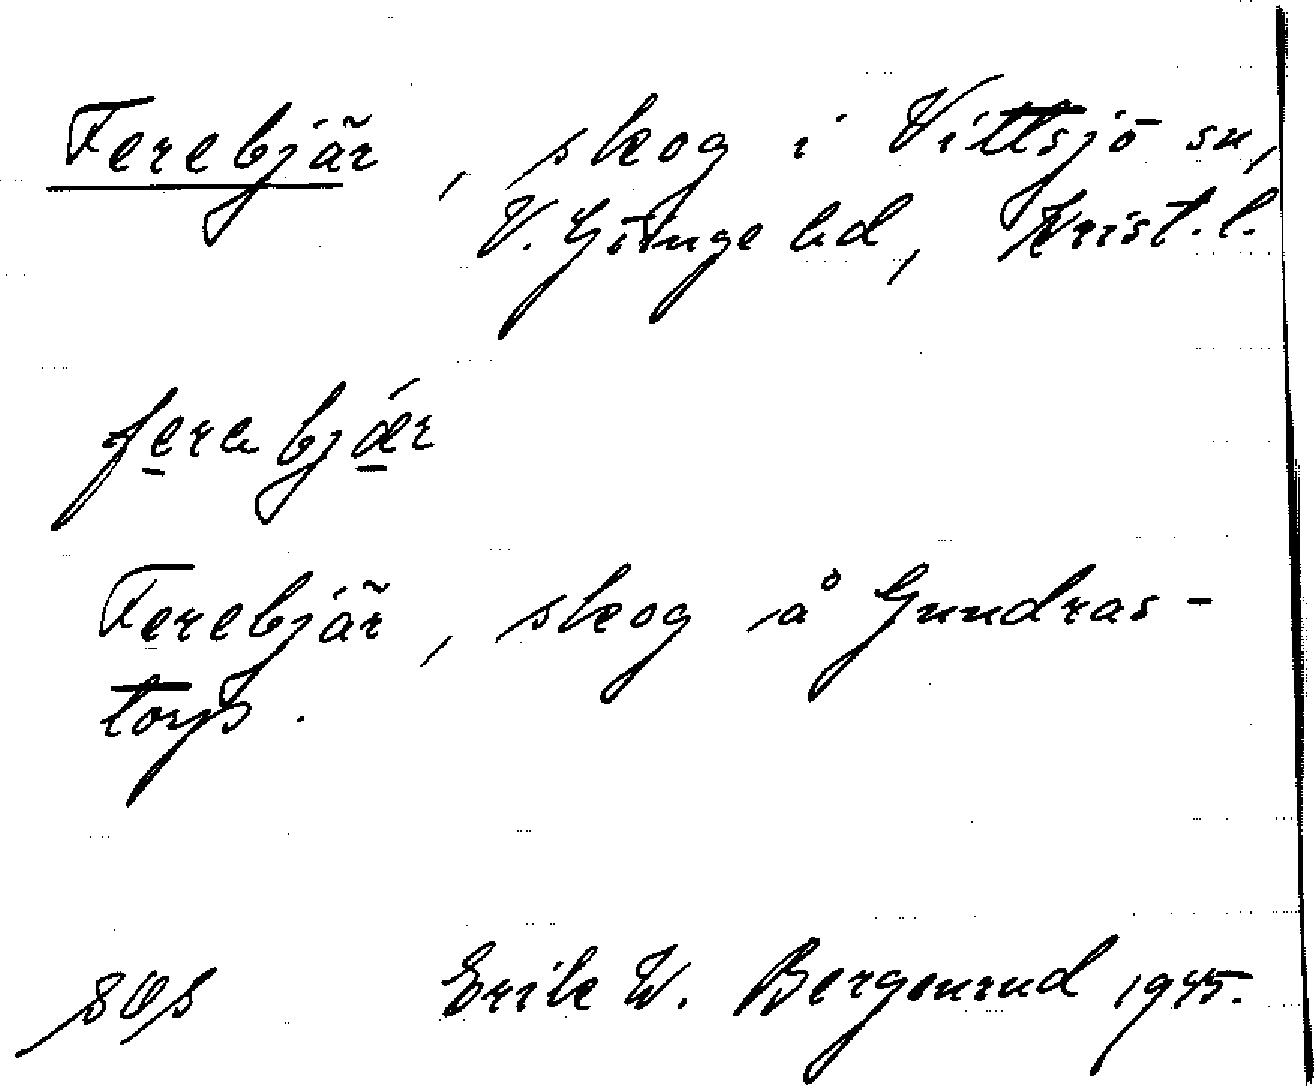 Ferebjär, skog i Vittsjö sn,
V. Göinge hd, Krist. l.
ferabjǽr
Ferebjär, skog å Gundras-
torp.
Erik W. Bergenrud 1945.